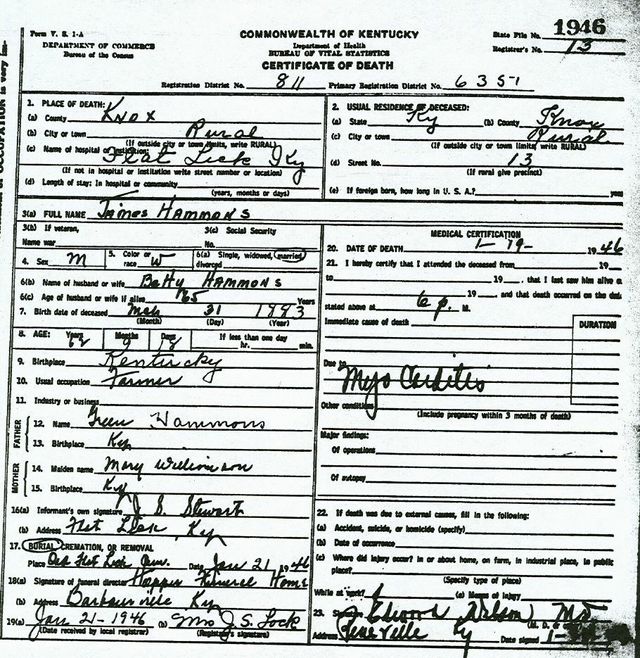 Form V. S. 1-A
DEPARTMENT OF COMMERCE
Bureau of the Census
COMMONWEALTH OF KENTUCKY
Department of Health
BUREAU OF VITAL STATISTICS
CERTIFICATE OF DEATH
State File No. 1946
Registrar's No. 13
Registration District No. 811 Primary Registration District No. 6351
1. PLACE OF DEATH:
(a) County Knox
(b) City or town Rural
(If outside city or town limits, write RURAL)
(c) Name of hospital or institution: Flat Lick Ky
(If not in hospital or institution write street number or location)
(d) Length of stay: In hospital or community
(years, months or days)
2. USUAL RESIDENCE OF DECEASED:
(a) State Ky (b) County Knox
(c) City or town Rural
(If outside city or town limits, write RURAL)
(d) Street No. 13
(If rural give precinct)
(e) If foreign born, how long in U. S. A.?
3(a) FULL NAME James HAMMONS
3(b) If veteran, 3(c) Social Security
Name war No.
4. Sex M 5. Color or race W 6(a) Single, widowed, married, divorced
6(b) Name of husband or wife Betty HAMMONS
6(c) Age of husband or wife if alive 65 Years
7. Birth date of deceased 31
(Month) (Day) (Year)
8. AGE: Years Months Days If less than one day
9 18 hr. min.
9. Birthplace Kentucky
10. Usual occupation Farmer
11. Industry or business
FATHER
12. Name Green Hammons
13. Birthplace Ky
MOTHER
14. Maiden name Mary
15. Birthplace Ky
16(a) Informant's own signature J. S. Stewart
(b) Address Flat Lick, Ky
17. BURIAL, CREMATION, OR REMOVAL
Place Old Flat Lick Date Jan 21, 1946
18(a) Signature of funeral director Hopper Funeral Home
(b) Address Barbourville Ky
19(a) Jan 21-1946 (b) Mrs J. S. Lock
(Date received by local registrar) (Registrar's signature)
MEDICAL CERTIFICATION
20. DATE OF DEATH 1-19- 1946
21. I hereby certify that I attended the deceased from 19
to 19 , that I last saw him alive
19 , and that death occurred on the date
stated above at 6 p. M.
Immediate cause of death
DURATION
Due to
Myo Carditis
Other conditions
(Include pregnancy within 3 months of death)
Major findings:
Of operations
Of autopsy
22. If death was due to external causes, fill in the following:
(a) Accident, suicide, or homicide (specify)
(b) Date of occurrence
(c) Where did injury occur? in or about home, on farm, in industrial place, in public
place?
(Specify type of place)
While at work? (e) Means of injury
23. Edward Wilson MD
Address Pineville Ky Date signed